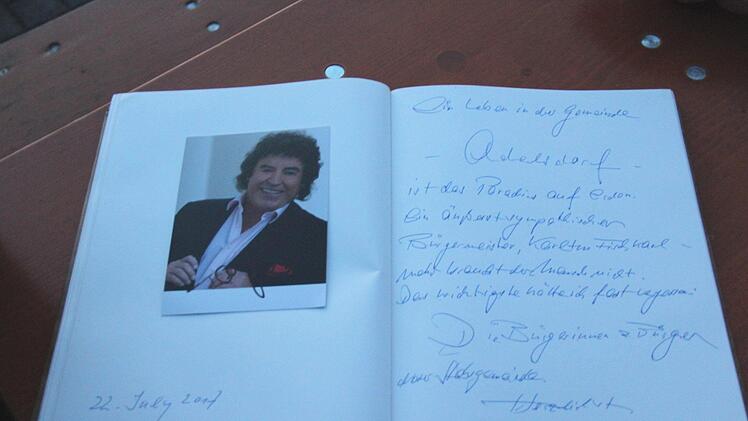 Ein Leben in der Gemeinde
- Adelsdorf -
ist das Paradies auf Erden.
Ein äußerst sympathischer
Bürgermeister, Karsten Fischkal -
mehr braucht der Mensch nicht.
Das wichtigste hätte ich fast vergessen:
Die Bürgerinnen & Bürger
dieser
Herzlichst
22. July 2017